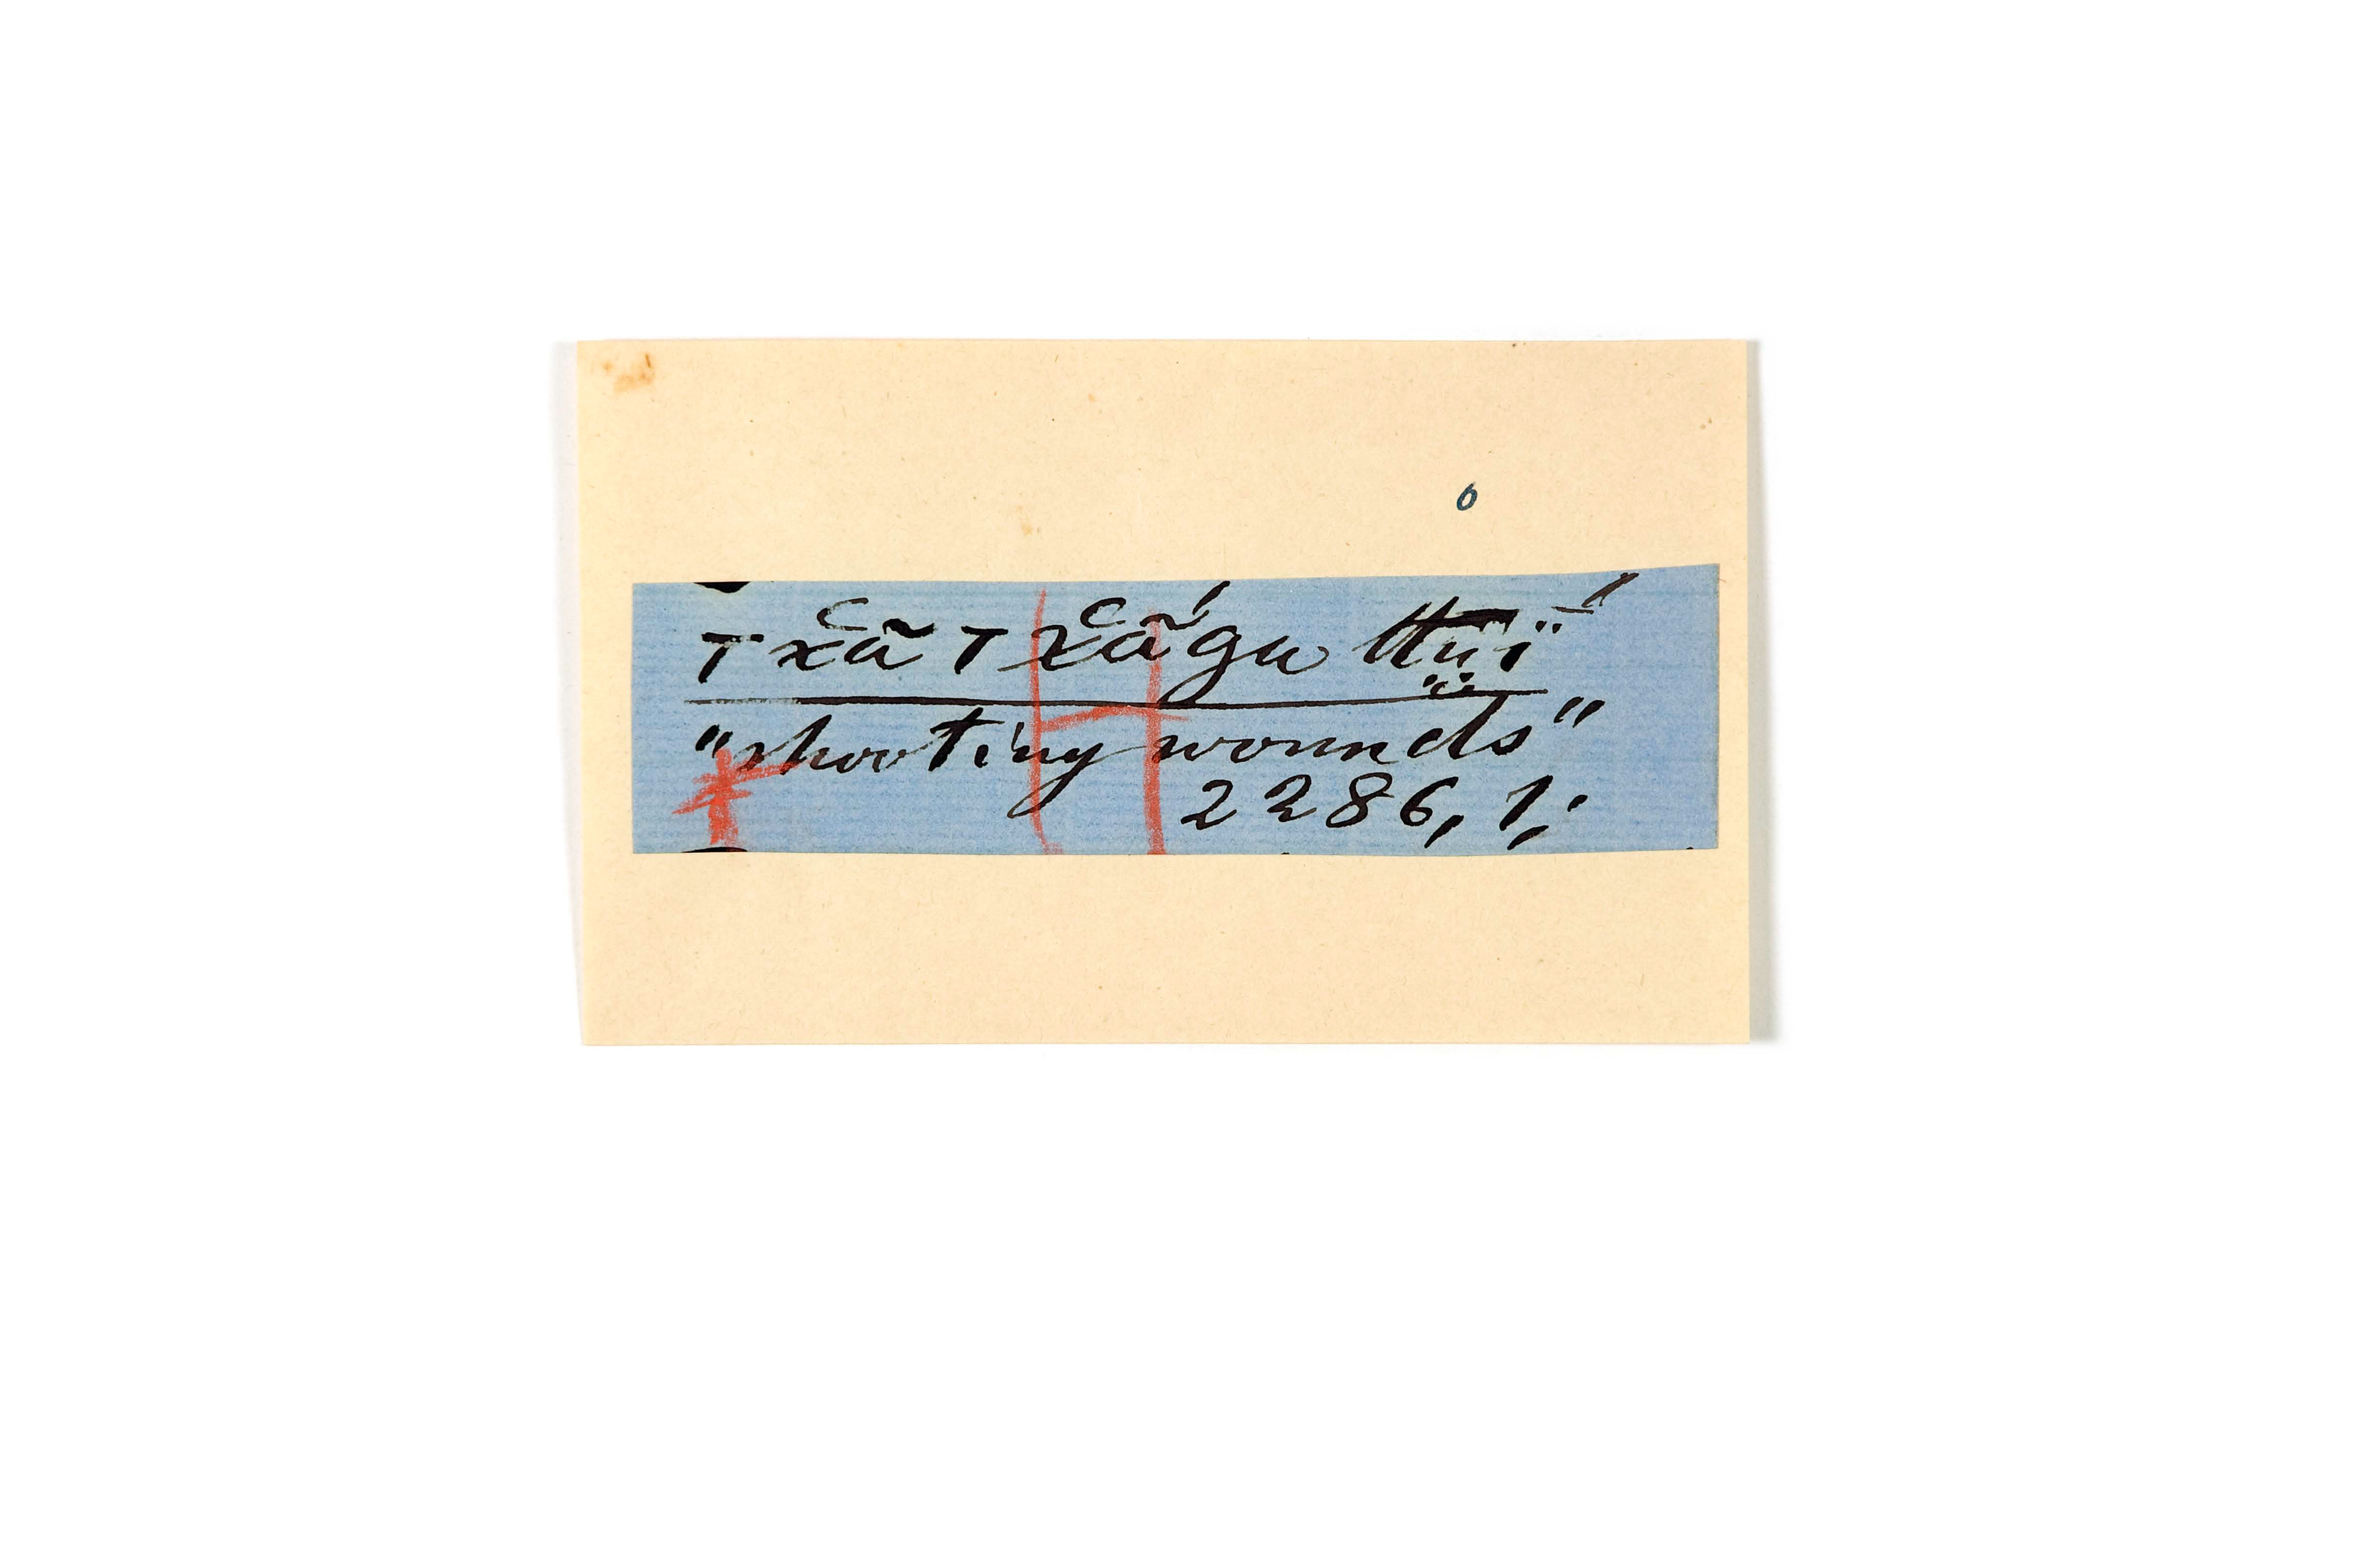 6
T x̆ã T x̆ã́gu ttṳ̈ḯ
"shooting wounds"
2286, 1,;
H